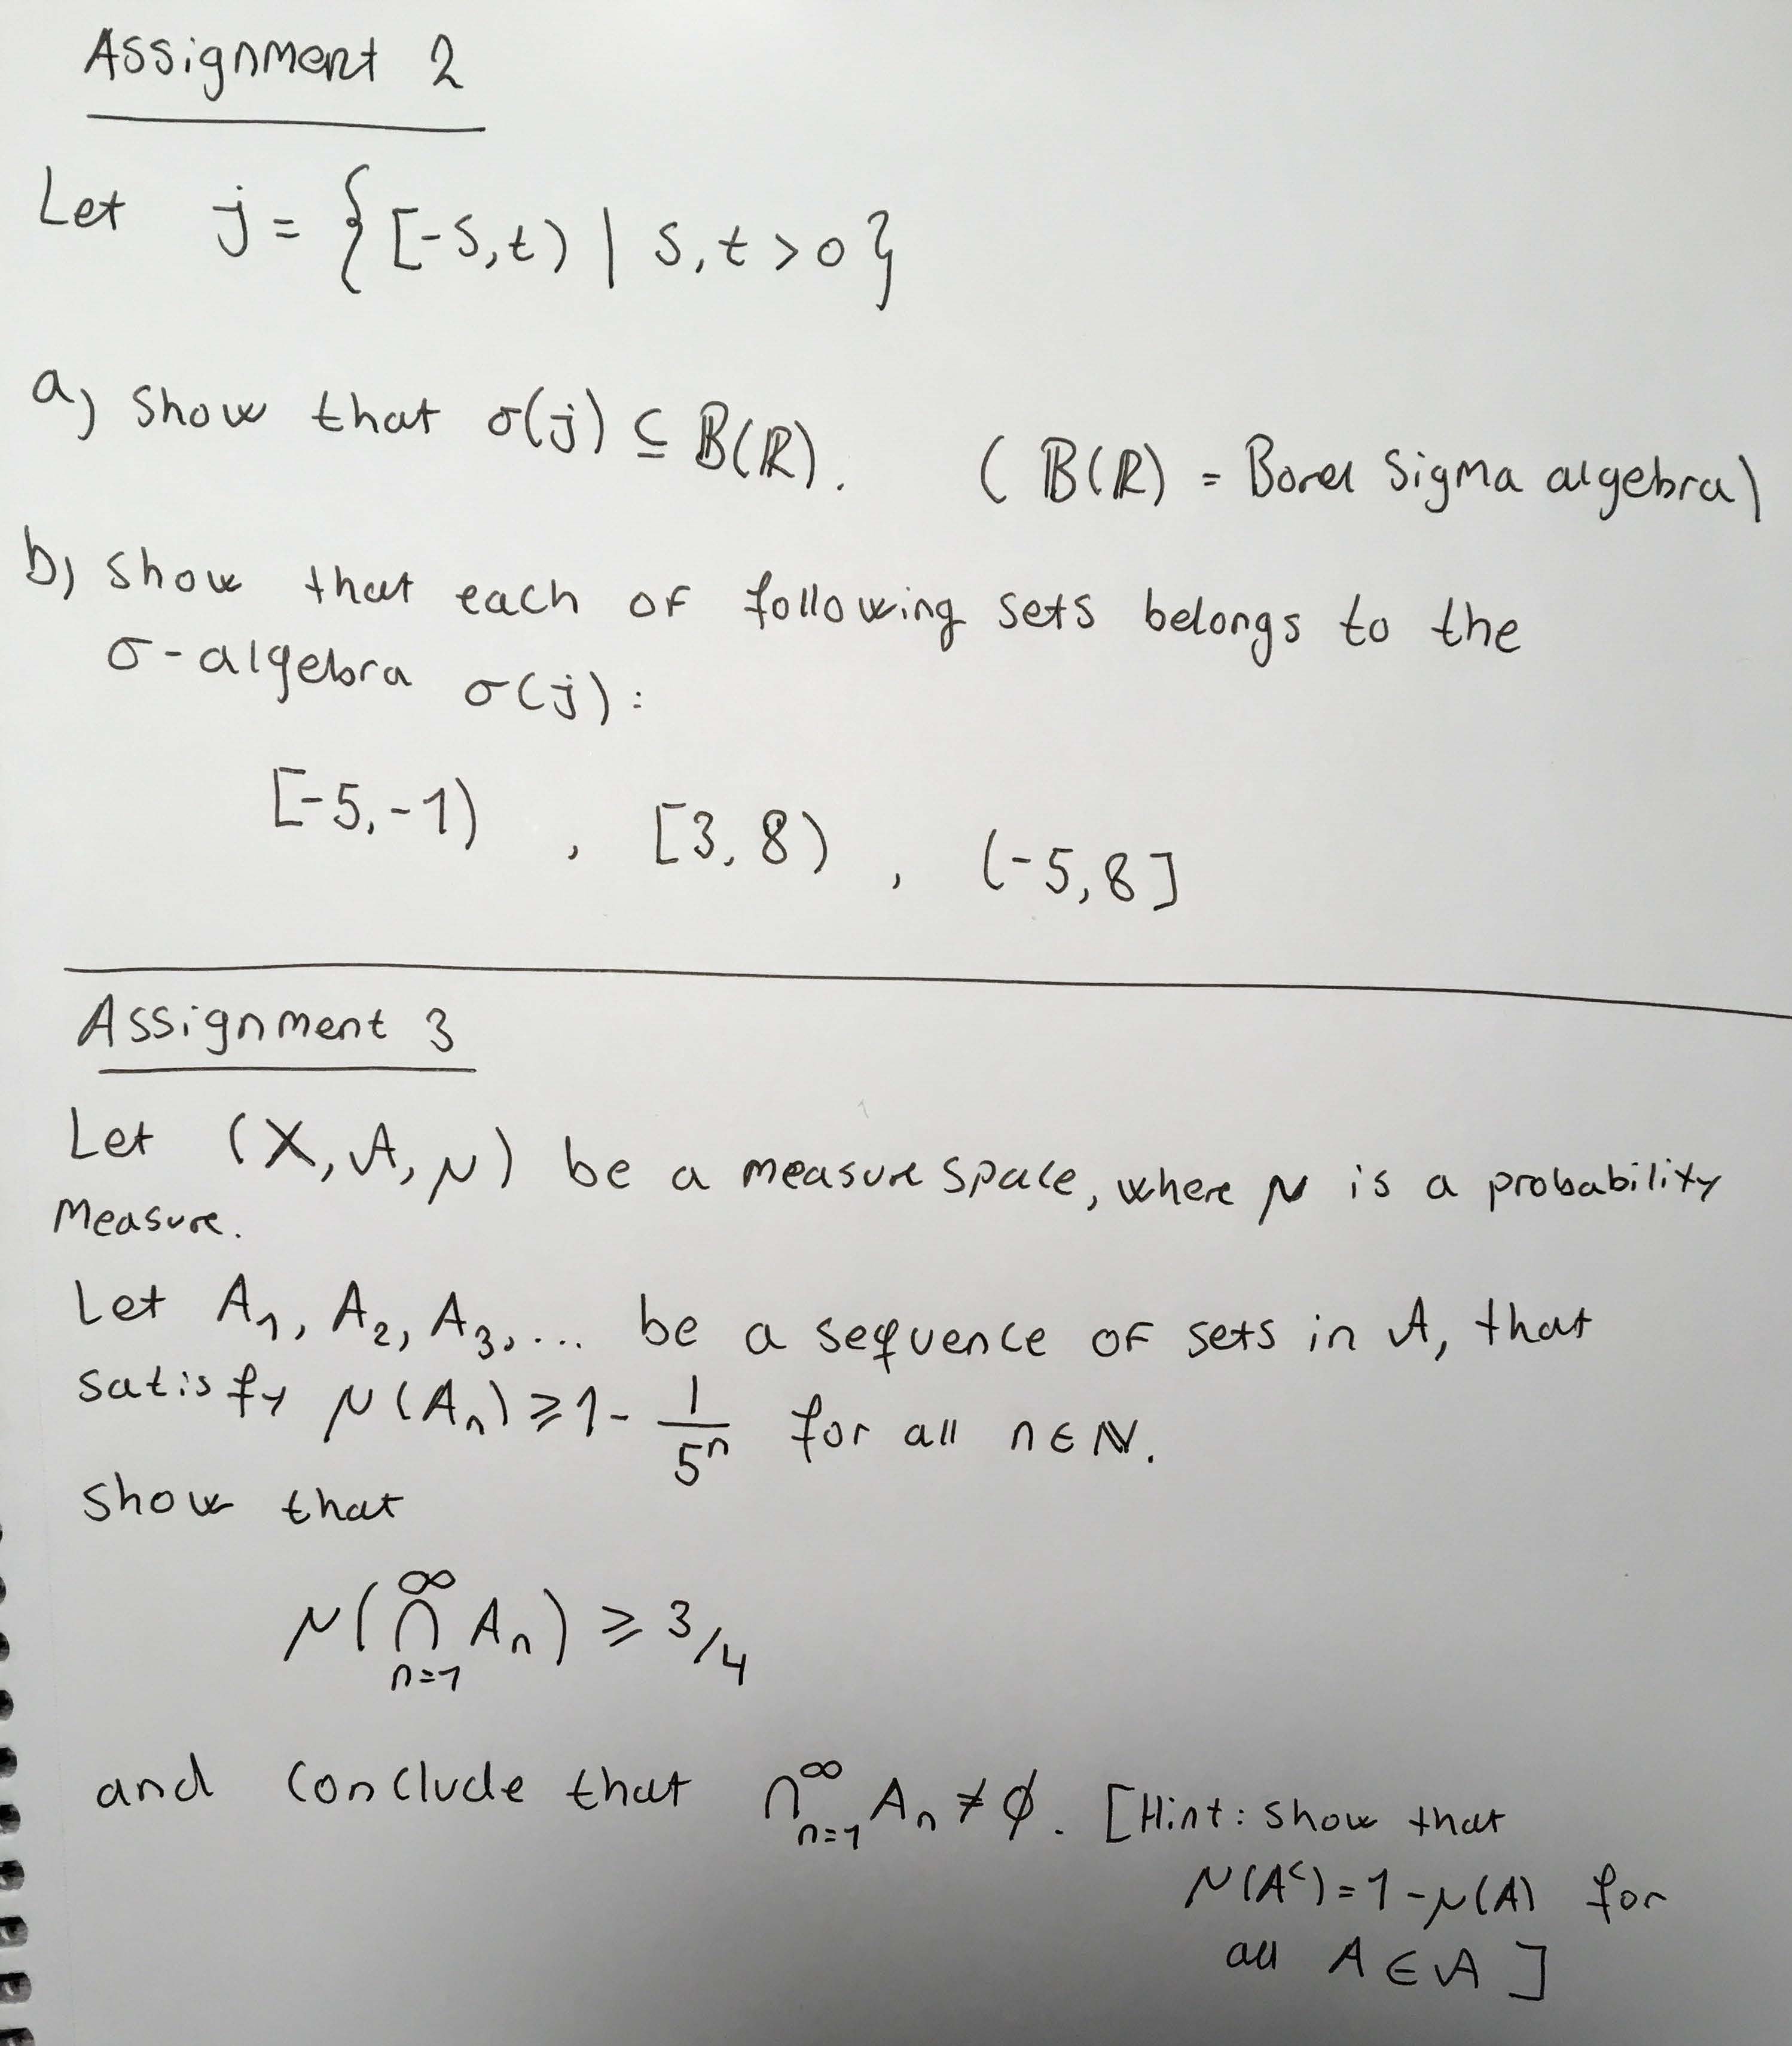 Assignment 2
Let j = { [-s,t) | s,t > 0 }
a) Show that σ(j) ⊆ B(ℝ). ( B(ℝ) = Borel sigma algebra)
b) Show that each of following sets belongs to the
σ-algebra σ(j):
[-5,-1) , [3,8) , (-5,8]
Assignment 3
Let (X, 𝒜, μ) be a measure space, where μ is a probability
Measure.
Let A₁, A₂, A₃, ... be a sequence of sets in 𝒜, that
satisfy μ(Aₙ) ≥ 1 - 1/5ⁿ for all n ∈ ℕ.
Show that
μ(⋂_{n=1}^{∞} Aₙ) ≥ 3/4
and conclude that ⋂_{n=1}^{∞} Aₙ ≠ ∅. [Hint: show that
μ(Aᶜ) = 1 - μ(A) for
all A ∈ 𝒜 ]